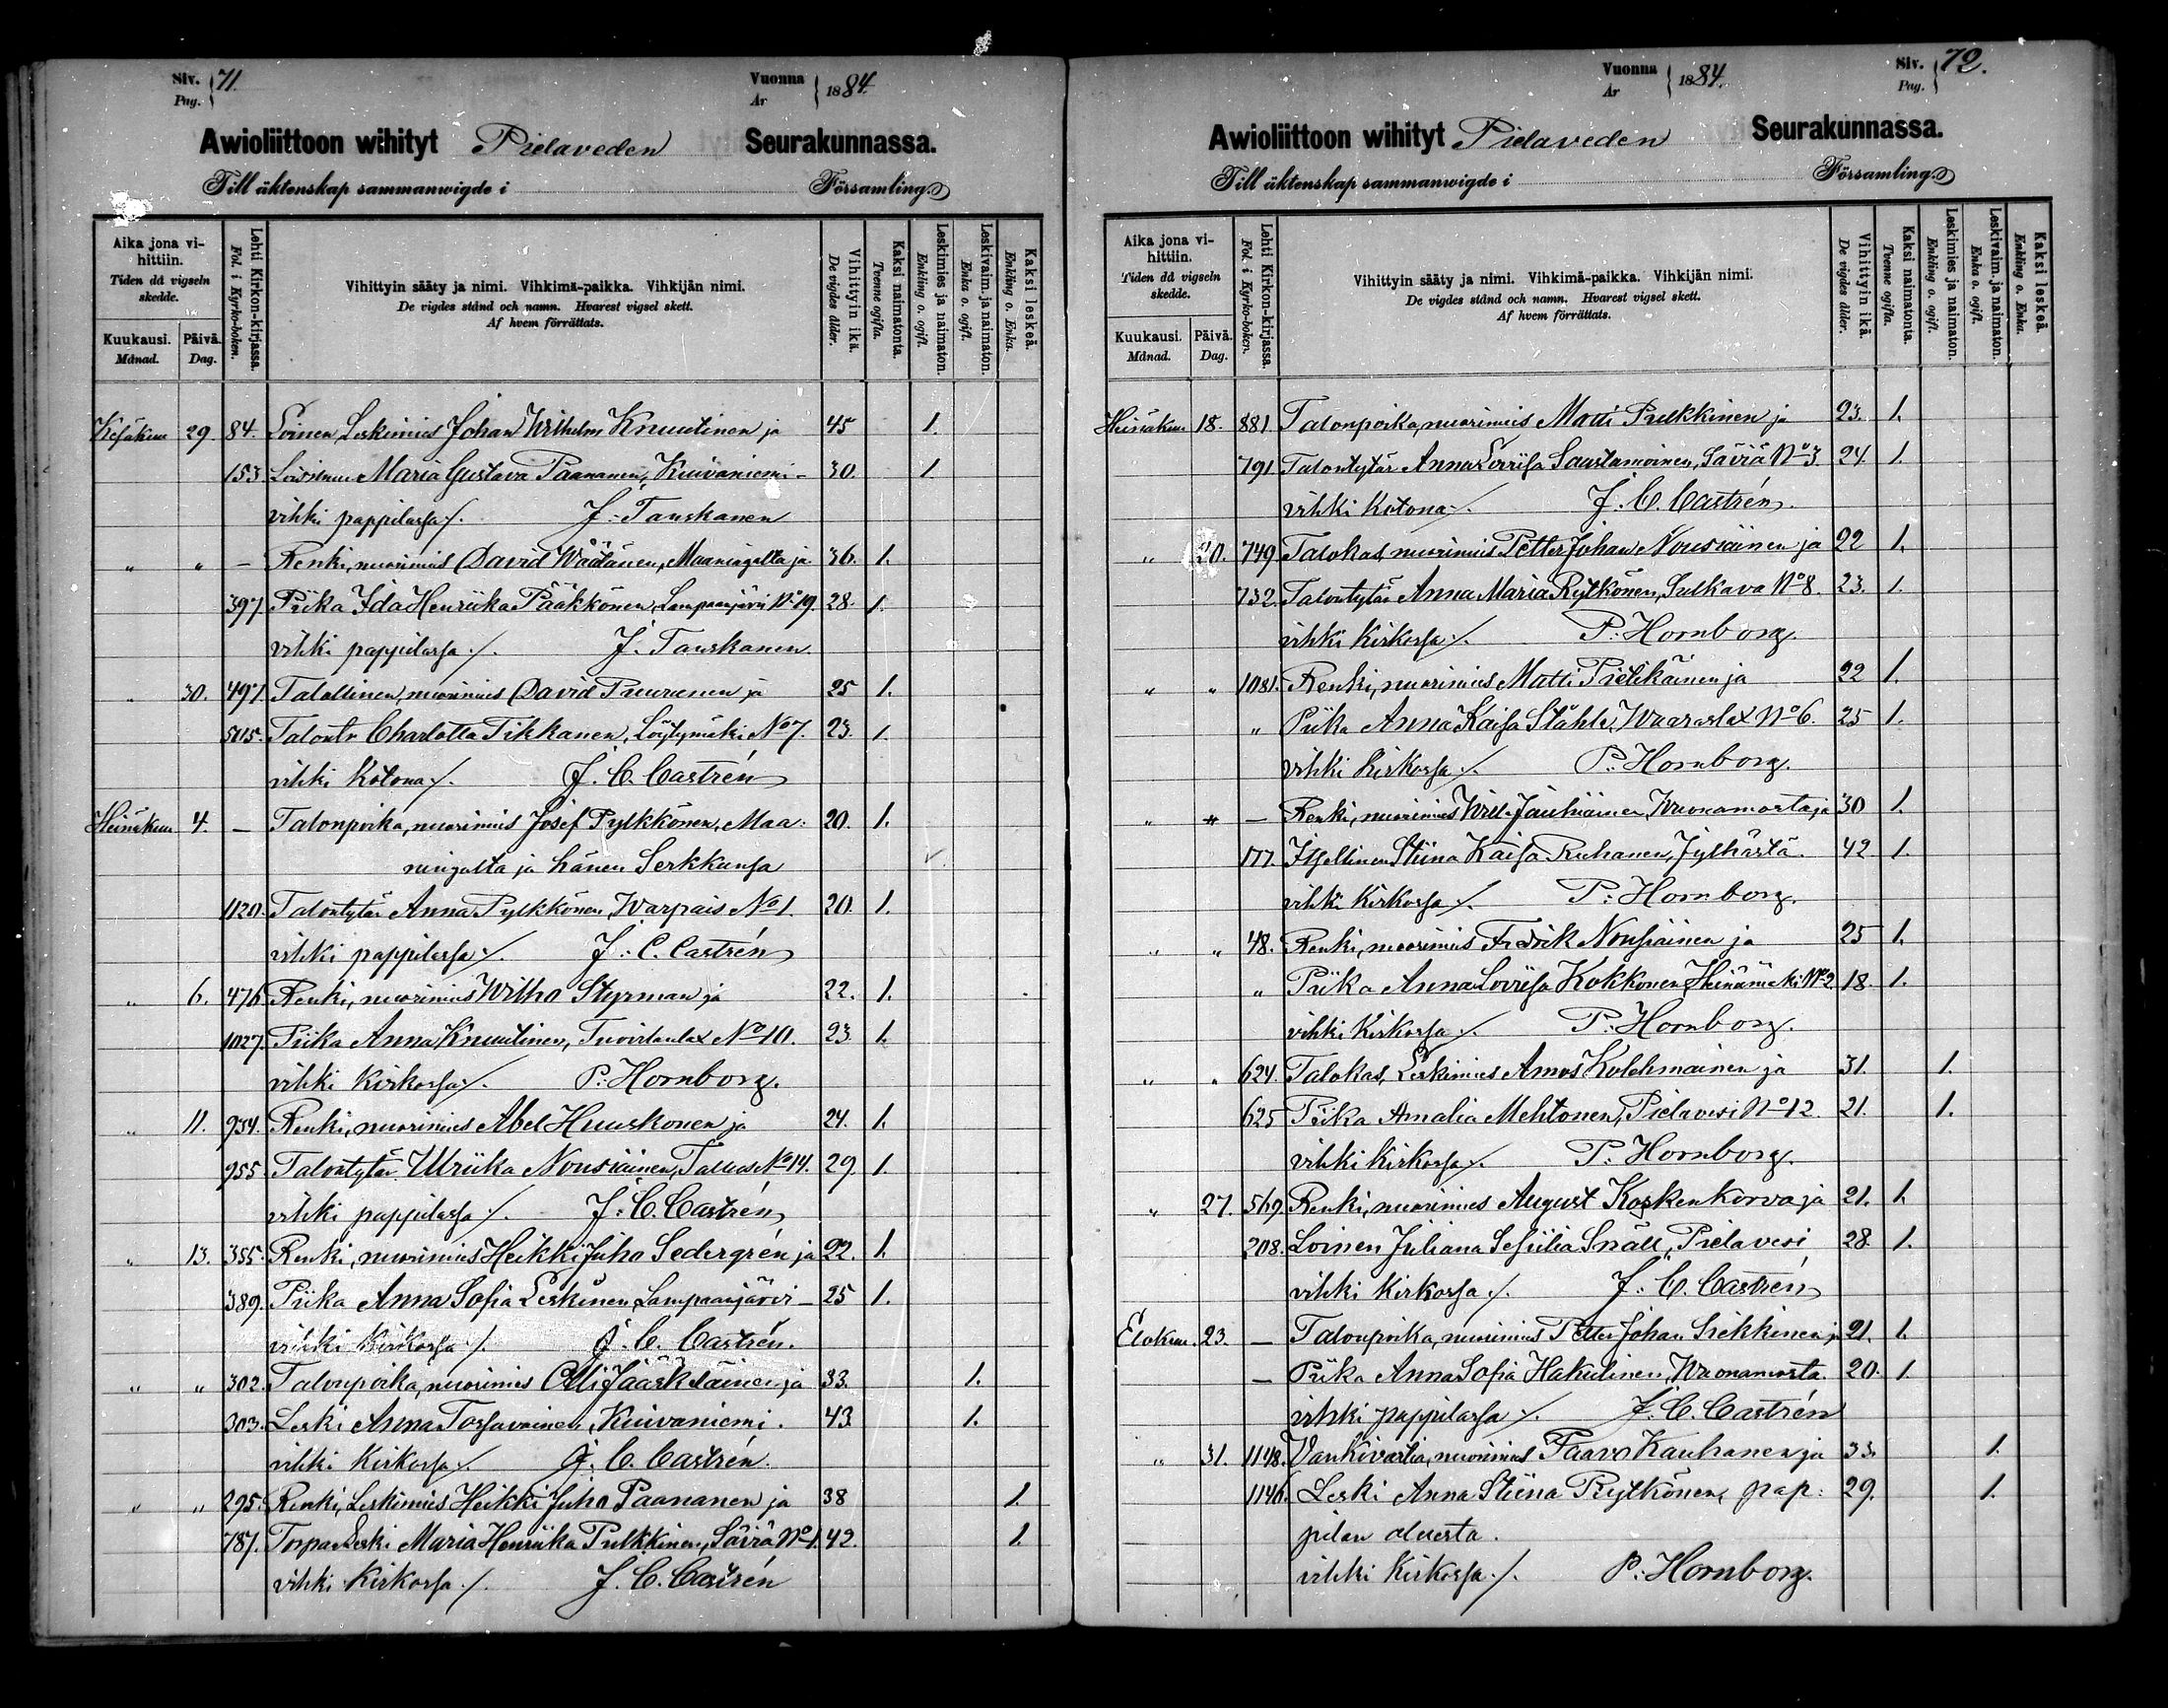 Siv. Pag. 71.
Vuonna År 1884.
Awioliittoon wihityt Pielaveden Seurakunnassa.
Till äktenskap sammanwigde i Församling.
Aika jona vihittiin. Tiden då vigseln skedde.
Kuukausi. Månad. Päivä. Dag.
Lehti Kirkon-kirjassa. Fol. i Kyrko-boken.
Vihittyin sääty ja nimi. Vihkimä-paikka. Vihkijän nimi.
De vigdes stånd och namn. Hvarest vigsel skett.
Af hvem förrättats.
Vihittyin ikä. De vigdes ålder.
Kaksi naimatonta. Tvenne ogifta.
Leskimies ja naimaton. Enkling o. ogift.
Leskivaim. ja naimaton. Enka o. ogift.
Kaksi leskeä. Enkling o. Enka.
Kesäkuu 29. 84. Loinen, Leskimies Johan Wilhelm Knuutinen ja 45 1.
153. Maria Gustava Paananen, Kuivaniemi - 30. 1
vihki pappilassa ./. J. Tauskanen
" " - Renki, nuorimies David Wäätänen, Maaningalta ja 36. 1.
397. Piika Ida Henriika Pääkkönen, Lampaanjärvi No 19. 28. 1.
vihki pappilassa ./. J. Tauskanen
" 30. 497. Talollinen, nuorimies David Puurunen ja 25 1.
5115. Talontr Charlotta Tikkanen, Löytymäki No 7. 23. 1.
vihki Kotona ./. J. C. Castrén
Heinäkuu 4. - Talonpoika, nuorimies Josef Pylkkönen, Maa- 20. 1.
ningalta ja hänen Serkkunsa
1120. Talontytär Anna Pylkkönen, Warpais No 1. 20. 1.
vihki pappilassa ./. J. C. Castrén
" 6. 476. Renki, nuorimies Wilho Styrman ja 22. 1.
1027. Piika Anna Knuutinen, Tuovilanlax No 10. 23. 1.
vihki Kirkossa ./. P. Hornborg.
" 11. 934. Renki, nuorimies Abel Huuskonen ja 24. 1.
955. Talontytär Ulriika Nousiainen, Tallus No 14. 29. 1.
vihki pappilassa ./. J. C. Castrén
" 13. 355. Renki, nuorimies Heikki Juho Sedergrén ja 22. 1.
389. Piika Anna Sofia Leskinen, Lampaanjärvi - 25 1.
vihki Kirkossa ./. J. C. Castrén.
" " 302. Talonpoika, nuorimies Olli Jääskeläinen ja 33. 1.
303. Leski Anna Tossavainen, Kuivaniemi. 43 1.
vihki Kirkossa ./. J. C. Castrén.
" " 295. Renki, Leskimies Heikki Juho Paananen ja 38 1.
787. Torpan Leski Maria Henriika Pulkkinen, Säviä No 1. 42. 1.
vihki Kirkossa ./. J. C. Castrén
Siv. Pag. 72.
Vuonna År 1884.
Awioliittoon wihityt Pielaveden Seurakunnassa.
Till äktenskap sammanwigde i Församling.
Aika jona vihittiin. Tiden då vigseln skedde.
Kuukausi. Månad. Päivä. Dag.
Lehti Kirkon-kirjassa. Fol. i Kyrko-boken.
Vihittyin sääty ja nimi. Vihkimä-paikka. Vihkijän nimi.
De vigdes stånd och namn. Hvarest vigsel skett.
Af hvem förrättats.
Vihittyin ikä. De vigdes ålder.
Kaksi naimatonta. Tvenne ogifta.
Leskimies ja naimaton. Enkling o. ogift.
Leskivaim. ja naimaton. Enka o. ogift.
Kaksi leskeä. Enkling o. Enka.
Heinäkuu. 18. 881. Talonpoika, nuorimies Matti Pulkkinen ja 23. 1.
791. Talontytär Anna Loviisa Saastamoinen, Säviä No 3 24. 1.
vihki Kotona ./. J. C. Castrén.
" 20. 749. Talokas, nuorimies Petter Johan Nousiainen ja 22 1.
732. Talontytär Anna Maria Rytkönen, Sulkava No 8. 23. 1.
vihki Kirkossa ./. P. Hornborg.
" " 1081. Renki, nuorimies Matti Pietikäinen ja 22 1.
" Piika Anna Kaisa Ståhle, Waaraslax No 6. 25 1.
vihki Kirkossa ./. P. Hornborg.
" " - Renki, nuorimies Wille Jauhiainen, Wuonamosta ja 30 1.
177. Itsellinen Stiina Kaisa Ruhanen, Jylhästä. 42 1.
vihki Kirkossa ./. P. Hornborg.
" " 48. Renki, nuorimies Fredrik Nousiainen ja 25 1.
" Piika Anna Loviisa Kokkonen, Heinämäki No 2. 18. 1.
vihki Kirkossa ./. P. Hornborg.
" " 624. Talokas, Leskimies Amos Kolehmainen ja 31. 1.
625 Piika Amalia Mehtonen, Pielavesi No 12 21. 1.
vihki Kirkossa ./. P. Hornborg.
" 27. 569. Renki, nuorimies August Koskenkorva ja 21. 1.
208. Loinen Juliana Sesiilia Snäll, Pielavesi 28. 1.
vihki Kirkossa ./. J. C. Castrén
Elokuu. 23. - Talonpoika, nuorimies Petter Johan Siekkinen ja 21. 1.
- Piika Anna Sofia Hakulinen, Wuonamosta. 20. 1.
vihki pappilassa ./. J. C. Castrén
" 31. 1148. Vankivartia, nuorimies Paavo Kauhanen ja 33. 1.
1146. Leski Anna Stiina Rytkönen, pap- 29. 1.
pilan alueesta.
vihki Kirkossa ./. P. Hornborg.